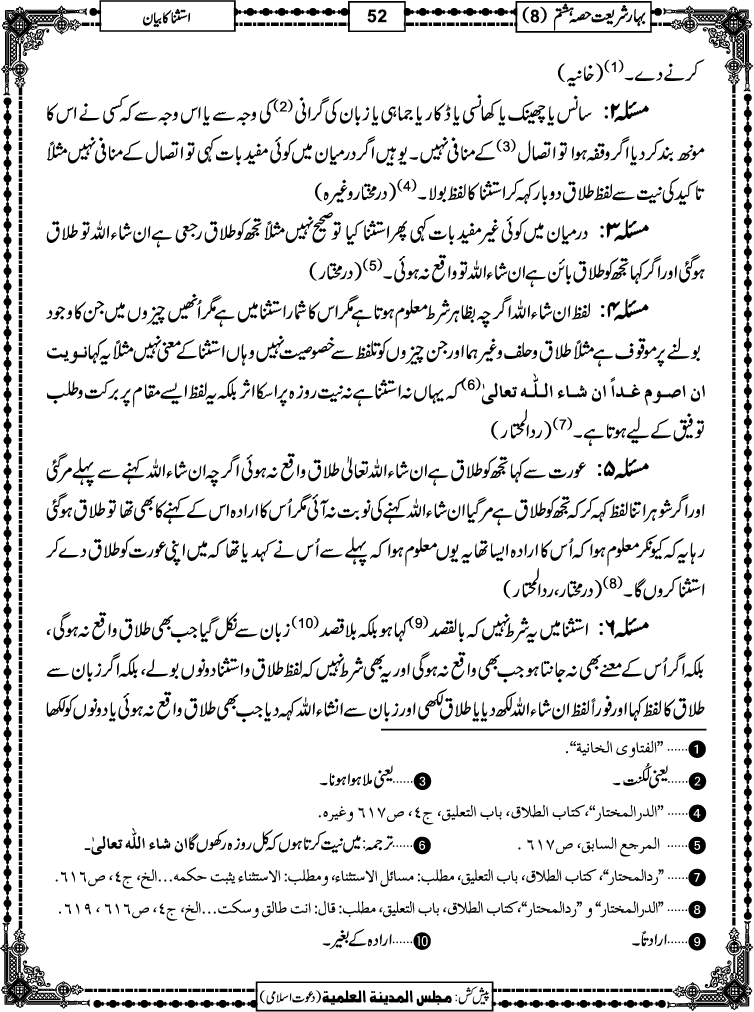 بہار شریعت حصہ ہشتم (8)
52
استثنا کا بیان
کرنے دے۔(1) (خانیہ)
مسئلہ ۲: سانس یا چھینک یا کھانسی یا ڈکار یا جماہی یا زبان کی گرانی(2) کی وجہ سے یا اس وجہ سے کہ کسی نے اس کا
مونھ بند کر دیا اگر وقفہ ہوا تو اتصال(3) کے منافی نہیں۔ یوہیں اگر درمیان میں کوئی مفید بات کہی تو اتصال کے منافی نہیں مثلاً
تاکید کی نیت سے لفظ طلاق دو بار کہہ کر استثنا کا لفظ بولا۔(4) (درمختار وغیرہ)
مسئلہ ۳: درمیان میں کوئی غیر مفید بات کہی پھر استثنا کیا تو صحیح نہیں مثلاً تجھ کو طلاق رجعی ہے ان شاء اللہ تو طلاق
ہوگئی اور اگر کہا تجھ کو طلاق بائن ہے ان شاء اللہ تو واقع نہ ہوئی۔(5) (درمختار)
مسئلہ ۴: لفظ ان شاء اللہ اگرچہ بظاہر شرط معلوم ہوتا ہے مگر اس کا شمار استثنا میں ہے مگر اُنھیں چیزوں میں جن کا وجود
بولنے پر موقوف ہے مثلاً طلاق و حلف وغیرہما اور جن چیزوں کو تلفظ سے خصوصیت نہیں وہاں استثنا کے معنی نہیں مثلاً یہ کہا نویت
ان اصوم غداً ان شاء اللّٰہ تعالیٰ(6) کہ یہاں نہ استثنا ہے نہ نیت روزہ پر اسکا اثر بلکہ یہ لفظ ایسے مقام پر برکت و طلب
توفیق کے لیے ہوتا ہے۔(7) (ردالمحتار)
مسئلہ ۵: عورت سے کہا تجھ کو طلاق ہے ان شاء اللہ تعالیٰ طلاق واقع نہ ہوئی اگرچہ ان شاء اللہ کہنے سے پہلے مرگئی
اور اگر شوہر اتنا لفظ کہہ کر کہ تجھ کو طلاق ہے مرگیا ان شاء اللہ کہنے کی نوبت نہ آئی مگر اُس کا ارادہ اس کے کہنے کا بھی تھا تو طلاق ہوگئی
رہا یہ کہ کیونکر معلوم ہوا کہ اُس کا ارادہ ایسا تھا یہ یوں معلوم ہوا کہ پہلے سے اُس نے کہدیا تھا کہ میں اپنی عورت کو طلاق دے کر
استثنا کروں گا۔(8) (درمختار، ردالمحتار)
مسئلہ ۶: استثنا میں یہ شرط نہیں کہ بالقصد(9) کہا ہو بلکہ بلاقصد(10) زبان سے نکل گیا جب بھی طلاق واقع نہ ہوگی،
بلکہ اگر اُس کے معنے بھی نہ جانتا ہو جب بھی واقع نہ ہوگی اور یہ بھی شرط نہیں کہ لفظ طلاق و استثنا دونوں بولے، بلکہ اگر زبان سے
طلاق کا لفظ کہا اور فوراً لفظ ان شاء اللہ لکھ دیا یا طلاق لکھی اور زبان سے انشاء اللہ کہہ دیا جب بھی طلاق واقع نہ ہوئی یا دونوں کو لکھا
1 ...... "الفتاوی الخانیة".
2 ...... یعنی لُکنت۔ 3 ...... یعنی ملا ہوا ہونا۔
4 ...... "الدرالمختار"، کتاب الطلاق، باب التعلیق، ج٤، ص٦١٧ وغیرہ.
5 ...... المرجع السابق، ص٦١٧. 6 ...... ترجمہ: میں نیت کرتا ہوں کہ کل روزہ رکھوں گا ان شاء اللّٰہ تعالیٰ۔
7 ...... "ردالمحتار"، کتاب الطلاق، باب التعلیق، مطلب: مسائل الاستثناء، ومطلب: الاستثناء یثبت حکمه...الخ، ج٤، ص٦١٦.
8 ...... "الدرالمختار" و "ردالمحتار"، کتاب الطلاق، باب التعلیق، مطلب: قال: انت طالق وسکت...الخ، ج٤، ص٦١٦، ٦١٩.
9 ...... ارادتاً۔ 10 ...... ارادہ کے بغیر۔
پیش کش: مجلس المدینة العلمیة (دعوت اسلامی)